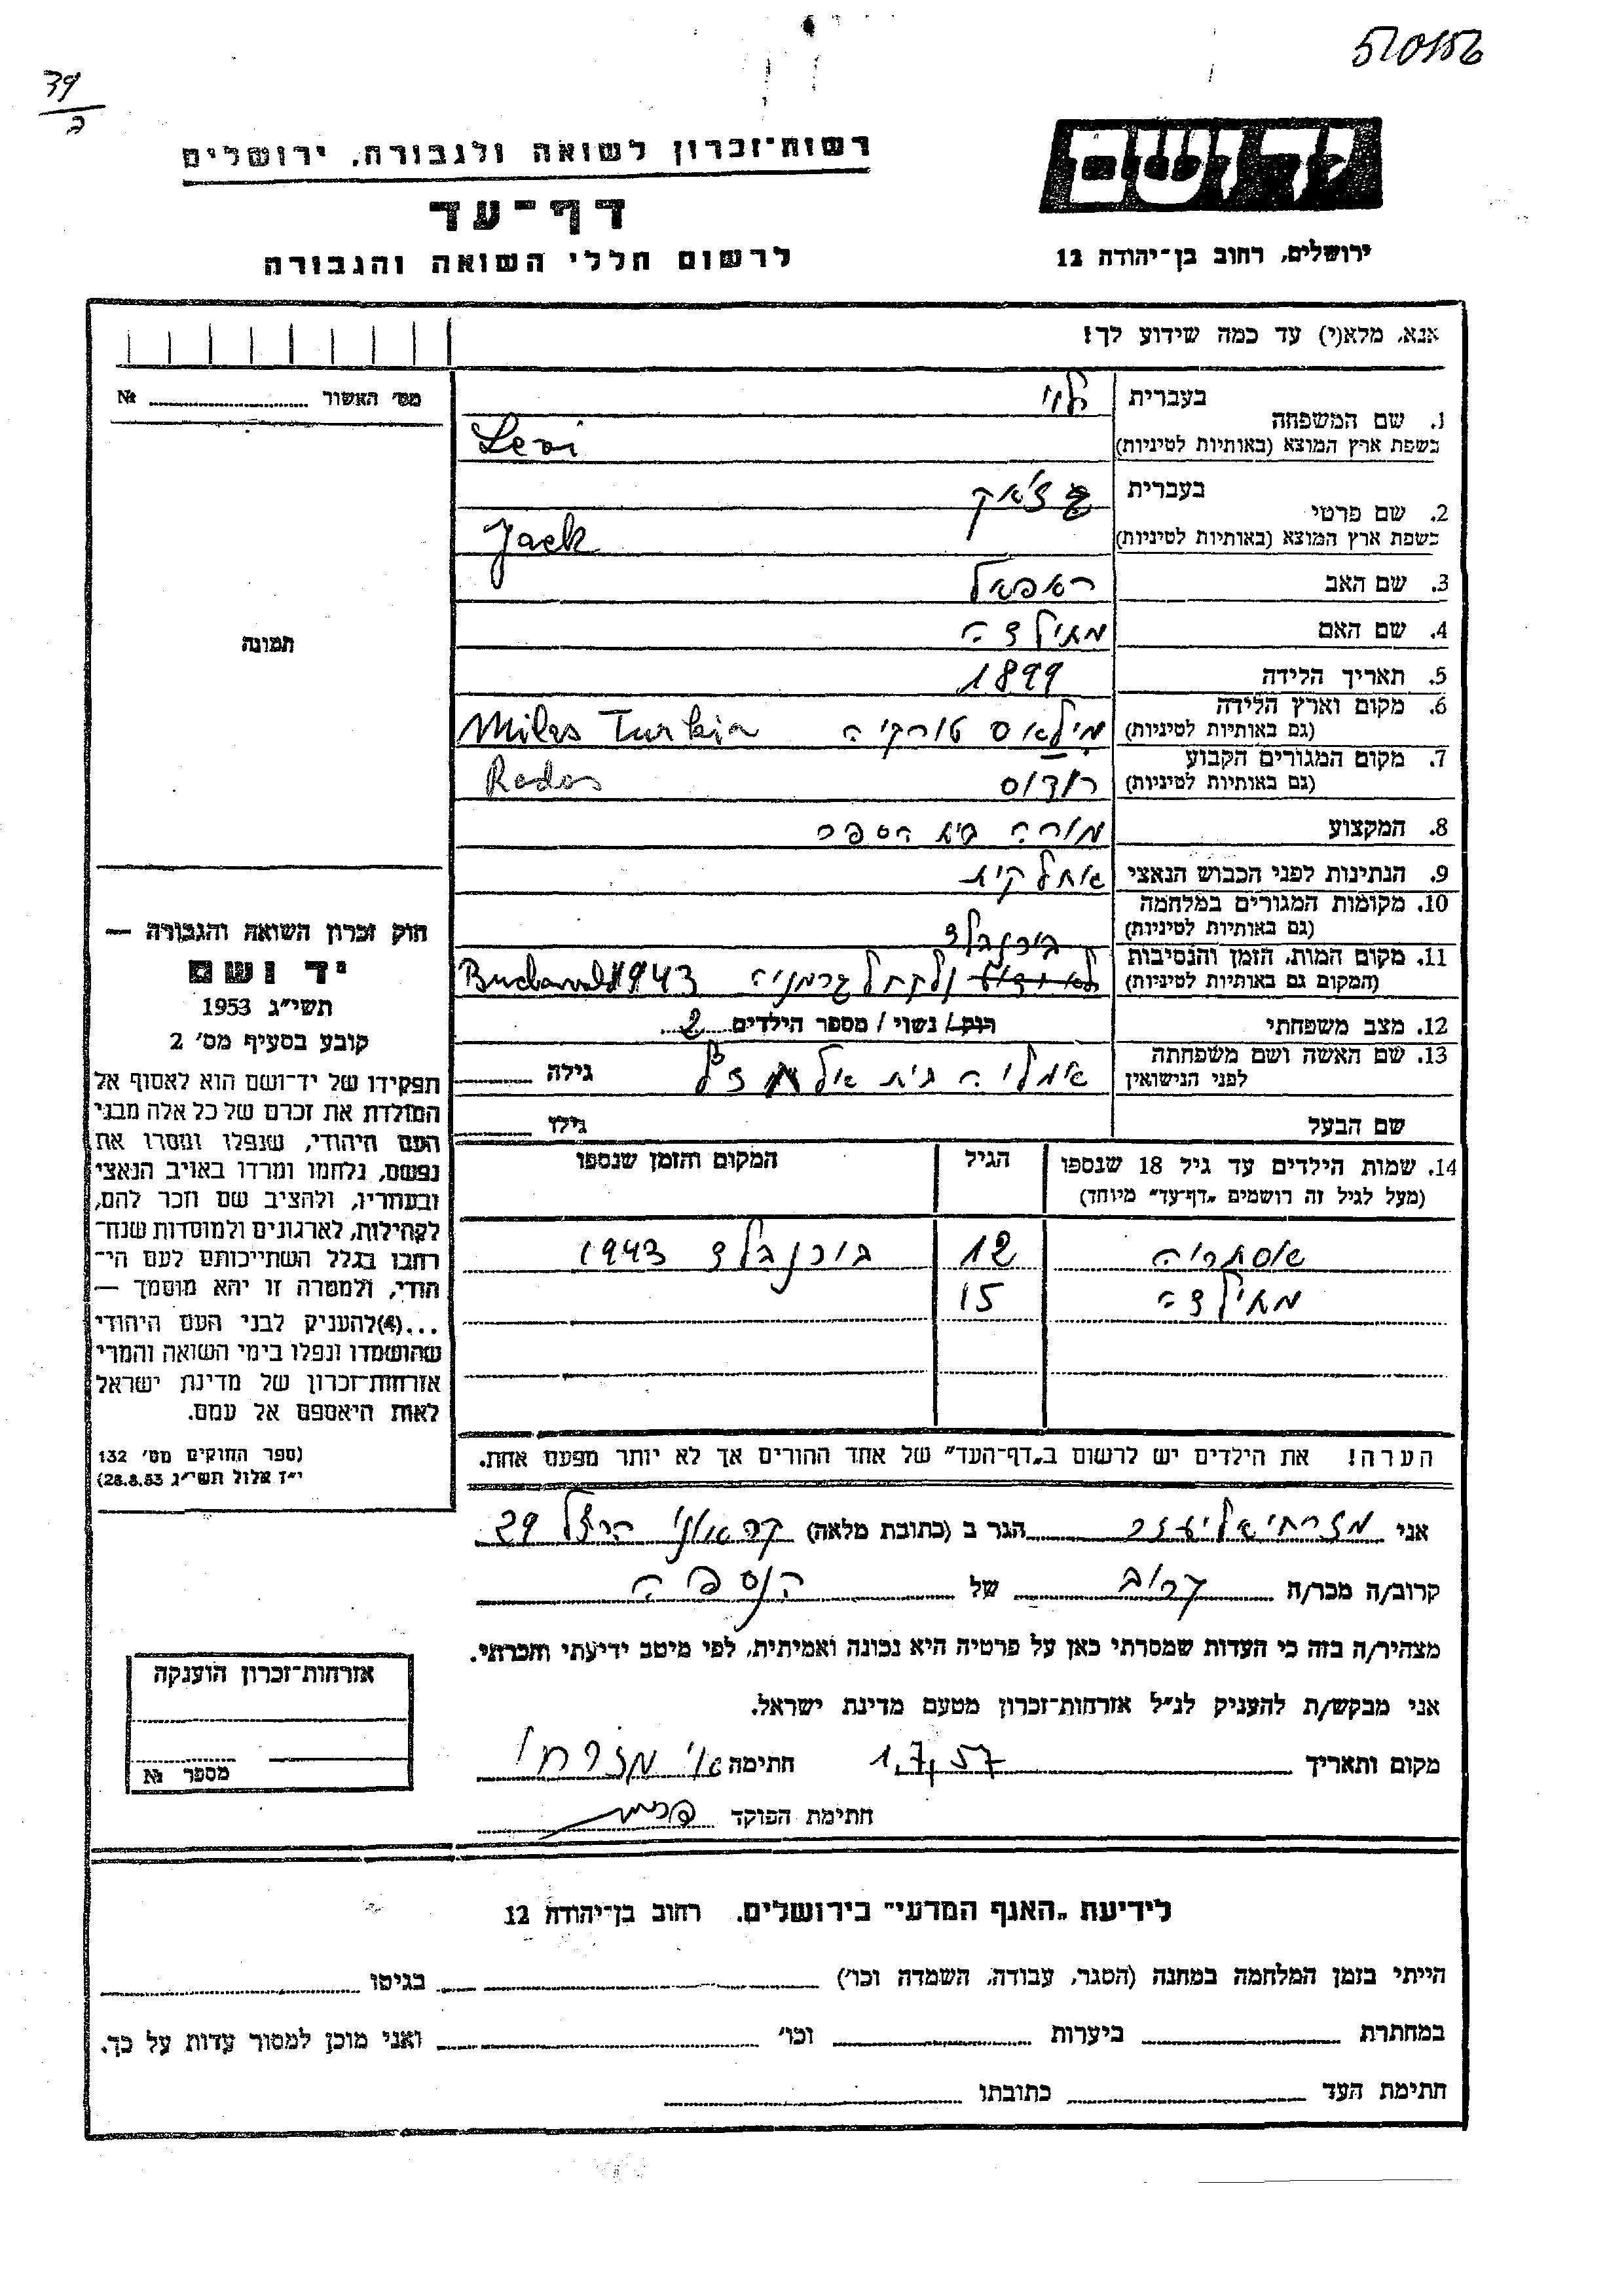 520156
39
2
יד ושם
רשות־זכרון לשואה ולגבורה, ירושלים
דף־עד
לרשום חללי השואה והגבורה
ירושלים, רחוב בן־יהודה 12
אנא, מלא(י) עד כמה שידוע לך!
מס׳ האשור № 
1. שם המשפחה בעברית לוי
בשפת ארץ המוצא (באותיות לטיניות) Levi
2. שם פרטי בעברית ז'אק
בשפת ארץ המוצא (באותיות לטיניות) Jack
3. שם האב רפאל
4. שם האם מטילדה
5. תאריך הלידה 1899
6. מקום וארץ הלידה (גם באותיות לטיניות) מילאס טורקיה Milas Turkia
7. מקום המגורים הקבוע (גם באותיות לטיניות) רודוס Rodos
8. המקצוע מורה בית הספר
9. הנתינות לפני הכבוש הנאצי
10. מקומות המגורים במלחמה
(גם באותיות לטיניות)
11. מקום המות, הזמן והנסיבות בוכנבלד
(המקום גם באותיות לטיניות) נלקח לגרמניה 1943
12. מצב משפחתי רווק/ נשוי/ מספר הילדים 2
13. שם האשה ושם משפחתה לפני הנישואין אמליה בית גילה
שם הבעל גילו
14. שמות הילדים עד גיל 18 שנספו הגיל המקום והזמן שנספו
(מעל לגיל זה רושמים „דף־עד״ מיוחד)
אסתריה 12 בוכנבלד 1943
מטילדה 15
הערה! את הילדים יש לרשום ב„דף־העד״ של אחד ההורים אך לא יותר מפעם אחת.
תמונה
חוק זכרון השואה והגבורה —
יד ושם
תשי״ג 1953
קובע בסעיף מס׳ 2
תפקידו של יד־ושם הוא לאסוף אל
המולדת את זכרם של כל אלה מבני
העם היהודי, שנפלו ומסרו את
נפשם, נלחמו ומרדו באויב הנאצי
ובעוזריו, ולהציב שם וזכר להם,
לקהילות, לארגונים ולמוסדות שנח־
רבו בגלל השתייכותם לעם הי־
הודי, ולמטרה זו יהא מוסמך —
...(4)להעניק לבני העם היהודי
שהושמדו ונפלו בימי השואה והמרי
אזרחות־זכרון של מדינת ישראל
לאות היאספם אל עמם.
(ספר החוקים מס׳ 132
י״ז אלול תשי״ג 28.8.53)
אני מזרחי אליעזר הגר ב (כתובת מלאה) הרצל 29
קרוב/ה מכר/ה קרוב של הנספה
מצהיר/ה בזה כי העדות שמסרתי כאן על פרטיה היא נכונה ואמיתית, לפי מיטב ידיעתי והכרתי.
אני מבקש/ת להעניק לנ״ל אזרחות־זכרון מטעם מדינת ישראל.
מקום ותאריך 1.7.57 חתימה א' מזרחי
חתימת הפוקד
אזרחות־זכרון הוענקה
מספר №
לידיעת „האגף המדעי״ בירושלים, רחוב בן־יהודה 12
הייתי בזמן המלחמה במחנה (הסגר, עבודה, השמדה וכו׳) בגיטו
במחתרת ביערות וכו׳ ואני מוכן למסור עדות על כך.
חתימת העד כתובתו